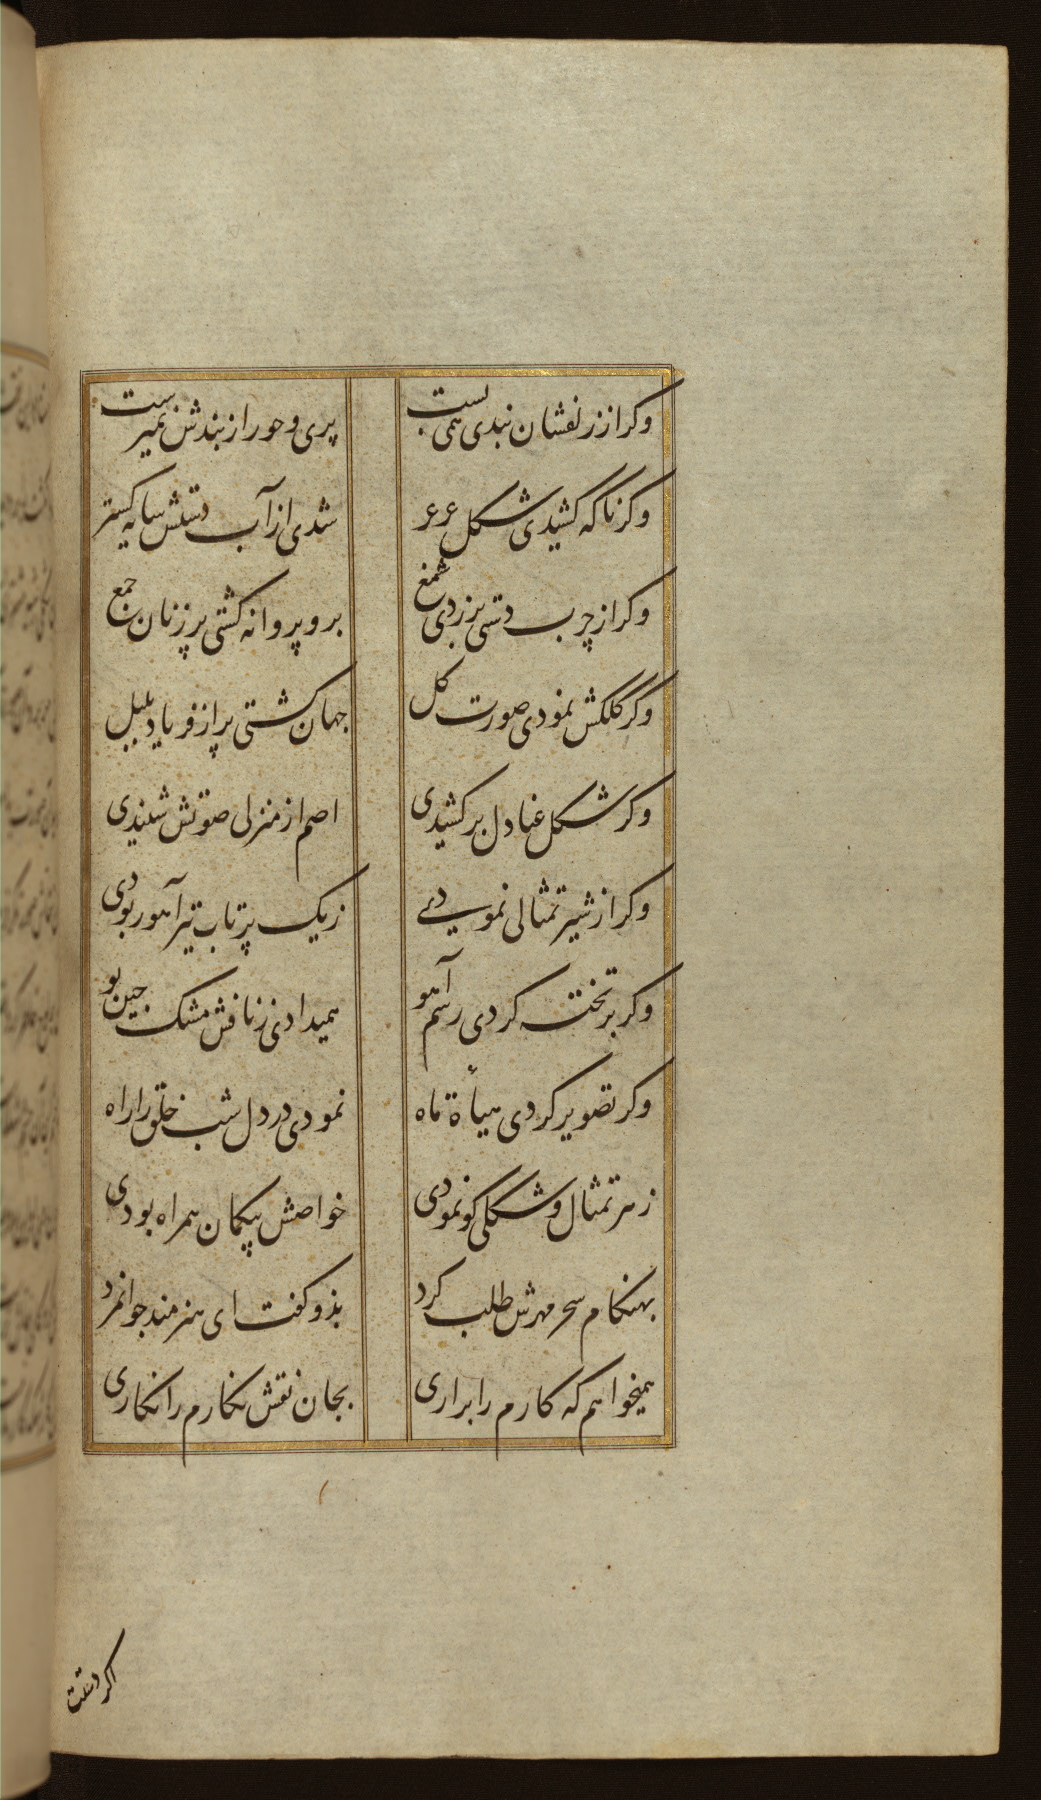 وکر از زلفشان بندی همی بست
پری و حور از بندش نمیرست
وکر ناکه کشیدی شکل عرعر
شدی از آب دستش سایه کستر
وکر از چرب دستی بر زدی شمع
برو پروانه کشتی پر زنان جمع
وکر کلکش نمودی صورت کل
جهان کشتی پر از فریاد بلبل
وکر شکل عنادل بر کشیدی
اصم از منزلی صوتش شنیدی
وکر از شیر تمثالی نمودی
زیک پرتاب تیر آهو ربودی
وکر بر تخته کردی رسم آهو
همیدادی ز نافش مشک چین بو
وکر تصویر کردی هیأة ماه
نمودی در دل شب خلق را راه
ز هر تمثال و شکلی کو نمودی
خواصش بیکمان همراه بودی
بهنکام سحر مهرش طلب کرد
بدو کفت ای هنرمند جوانمرد
همیخواهم که کارم را براری
بجان نقش نکارم را نکاری
اکر دستت